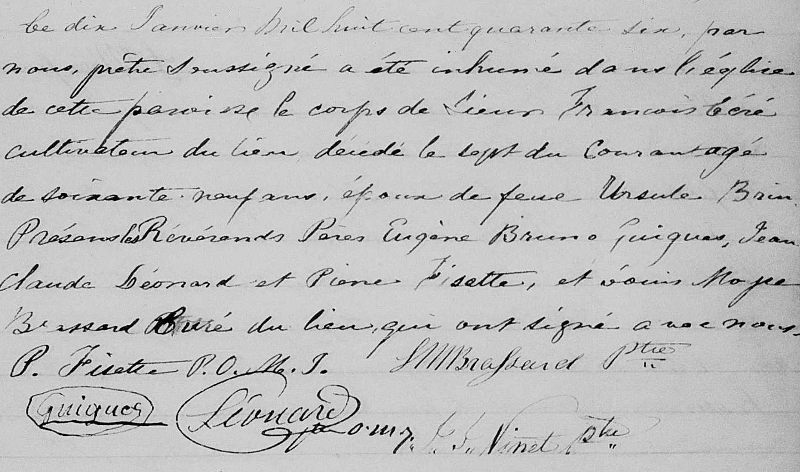 Ce dix Janvier Mil huit cent quarante six, par
nous, prêtre Soussigné a été inhumé dans l'église
de cette paroisse le corps de Sieur Francois Céré
cultivateur du lieu, décédé le sept du Courant agé
de soixante-neuf ans, époux de feue Ursule Brin
Présens les Révérends Pères Eugène Bruno Guigues, Jean
Claude Léonard et Pierre Fisette, et Louis Moyse
Brassard Curé du lieu, qui ont signé avec nous.
P. Fisette P.O.M.I. LMBrassard Ptre
Guigues Léonard o.m.J. Vinet ptre